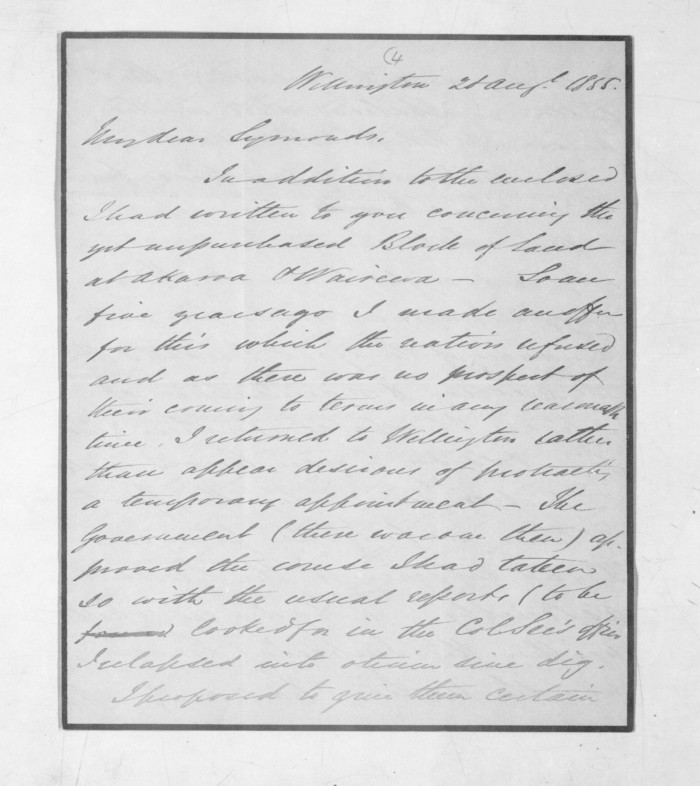 (4
Wellington 28 Augt. 1855.
My dear Symonds,
In addition to the enclosed
I had written to you concerning the
yet unpurchased Block of Land
at Akaroa & Wairewa — Some
five years ago I made an offer
for this which the natives refused
and as there was no prospect of
their coming to terms in any reasonable
time. I returned to Wellington rather
than appear desirous of protracting
a temporary appointment — The
Government (there was one then) ap-
proved the course I had taken
so with the usual reports, (to be
found looked for in the Col Sec's office
I relapsed into otium sine dig.
I proposed to give them certain